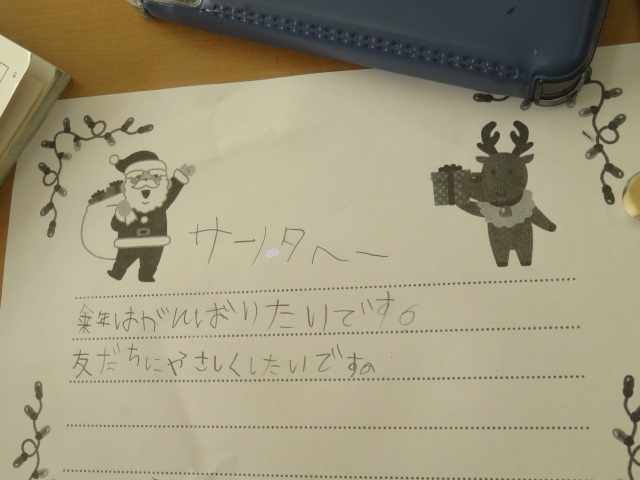 サンタへ
来年はがんばりたいです。
友だちにやさしくしたいです。